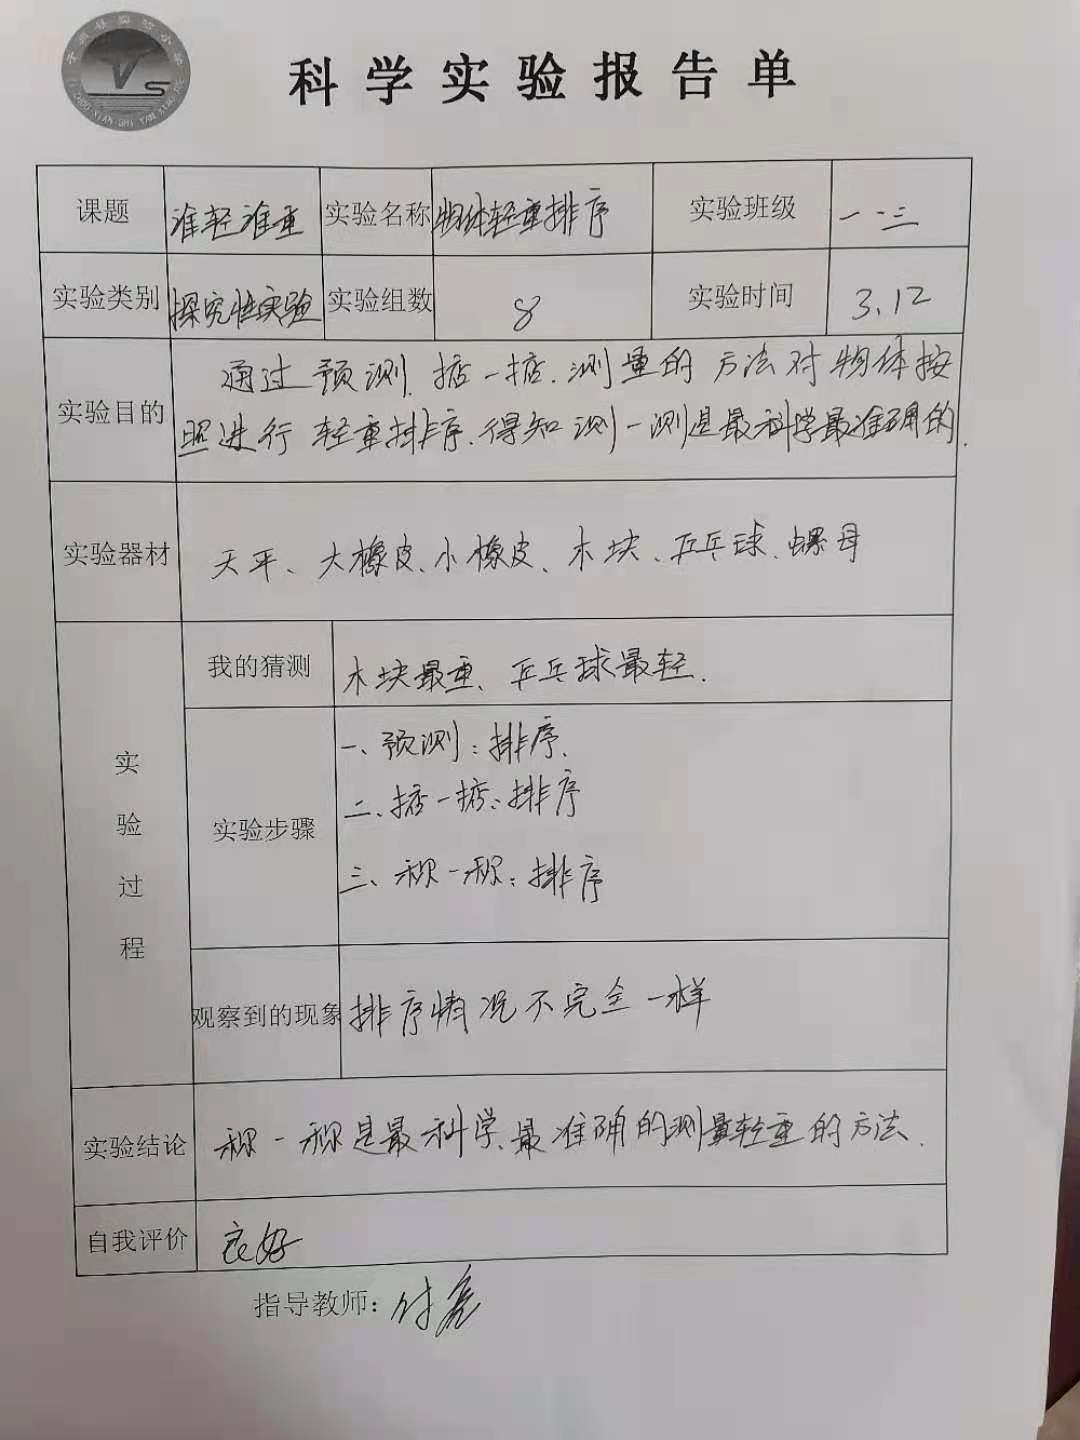 科学实验报告单
课题 谁轻谁重 实验名称 物体轻重排序 实验班级 一.三
实验类别 探究性实验 实验组数 8 实验时间 3.12
实验目的 通过预测、掂一掂、测量的方法对物体按
照进行轻重排序.得知测一测是最科学最准确的.
实验器材 天平、大橡皮、小橡皮、木块、乒乓球、螺母
实验过程
我的猜测 木块最重、乒乓球最轻.
实验步骤 一、预测:排序.
二、掂一掂:排序
三、称一称:排序
观察到的现象 排序情况不完全一样
实验结论 称一称是最科学、最准确的测量轻重的方法.
自我评价 良好
指导教师: 付亮